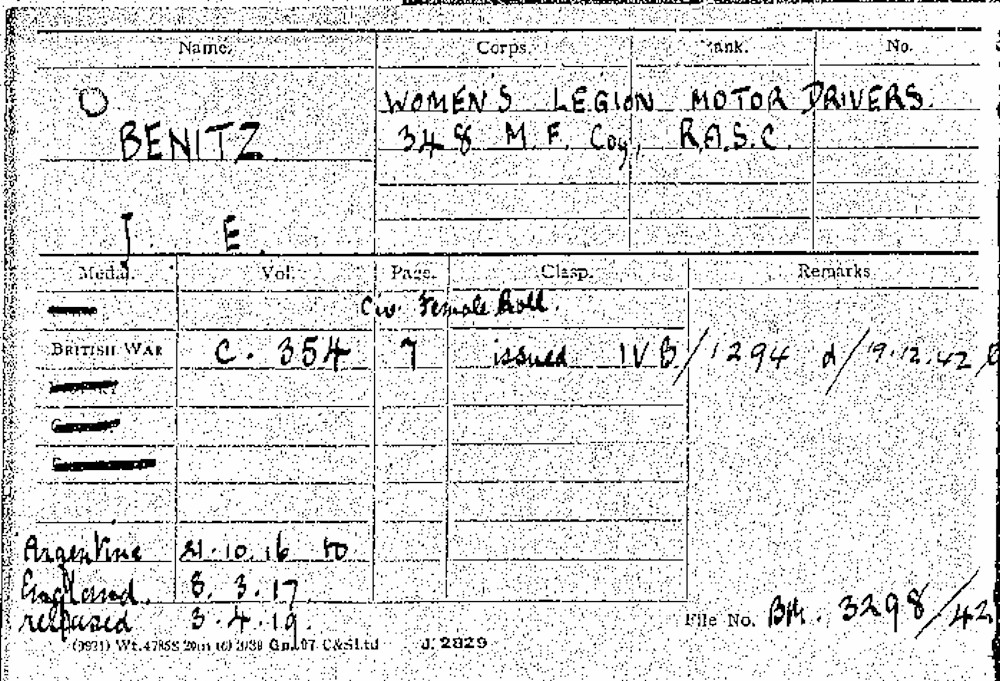 Name. Corps. Rank. No.
WOMEN'S LEGION MOTOR DRIVERS.
BENITZ
348 M.F. Coy, R.A.S.C.
J. E.
Medal. Vol. Page. Clasp. Remarks
Civ. Female Roll.
BRITISH WAR C. 354 7 issued IVB/1294 d/19.12.42
Argentine 21.10.16 to
England. 8.3.17.
released 3.4.19.
File No. BM. 3298/42
J. 2829